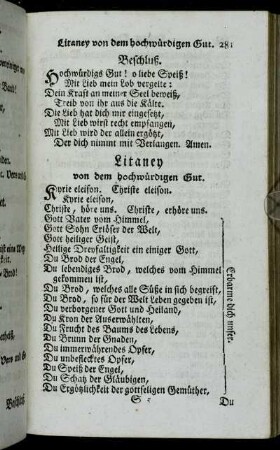 Litaney von dem hochwürdigen Gut. 281
Beschluß.
Hochwürdigs Gut! o liebe Speiß!
Mit Lieb mein Lob vergelte:
Dein Kraft an meiner Seel beweiß,
Treib von ihr aus die Kälte.
Die Lieb hat dich mir eingesetzt,
Mit Lieb wirst recht empfangen,
Mit Lieb wird der allein ergötzt,
Der dich nimmt mit Verlangen. Amen.
Litaney
von dem hochwürdigen Gut.
Kyrie eleison. Christe eleison.
Kyrie eleison,
Christe, höre uns. Christe, erhöre uns.
Gott Vater vom Himmel,
Gott Sohn Erlöser der Welt,
Gott heiliger Geist,
Heilige Dreyfaltigkeit ein einiger Gott,
Du Brod der Engel,
Du lebendiges Brod, welches vom Himmel
gekommen ist,
Du Brod, welches alle Süße in sich begreift,
Du Brod, so für der Welt Leben gegeben ist,
Du verborgener Gott und Heiland,
Du Kron der Auserwählten,
Du Frucht des Baums des Lebens,
Du Brunn der Gnaden,
Du immerwährendes Opfer,
Du unbeflecktes Opfer,
Du Speiß der Engel,
Du Schatz der Gläubigen,
Du Ergötzlichkeit der gottseligen Gemüther,
Erbarme dich unser.
Du